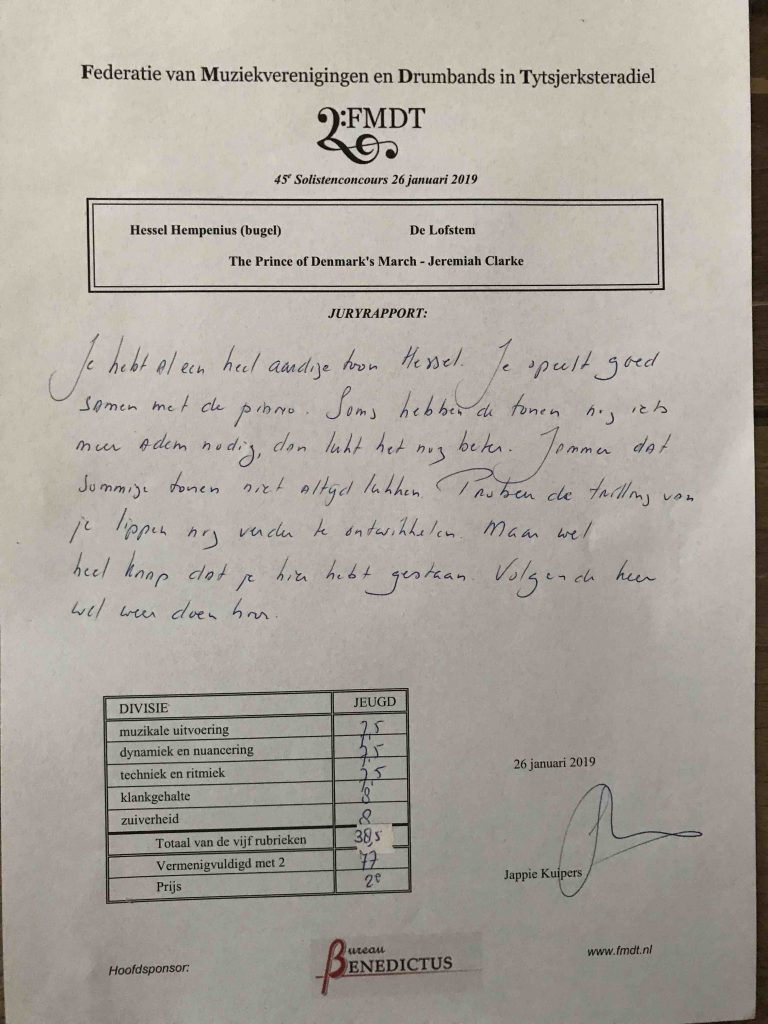 Federatie van Muziekverenigingen en Drumbands in Tytsjerksteradiel
FMDT
45e Solistenconcours 26 januari 2019
Hessel Hempenius (bugel) De Lofstem
The Prince of Denmark's March - Jeremiah Clarke
JURYRAPPORT:
Je hebt al een heel aardige toon Hessel. Je speelt goed
samen met de piano. Soms hebben de tonen nog iets
meer adem nodig, dan lukt het nog beter. Jammer dat
sommige tonen niet altijd lukken. Probeer de trilling van
je lippen nog verder te ontwikkelen. Maar wel
heel knap dat je hier hebt gestaan. Volgende keer
wel weer doen hoor.
DIVISIE JEUGD
muzikale uitvoering 7,5
dynamiek en nuancering 7,5
techniek en ritmiek 7,5
klankgehalte 8
zuiverheid 8
Totaal van de vijf rubrieken 38,5
Vermenigvuldigd met 2 77
Prijs 2e
26 januari 2019
Jappie Kuipers
Hoofdsponsor:
Bureau
BENEDICTUS
www.fmdt.nl